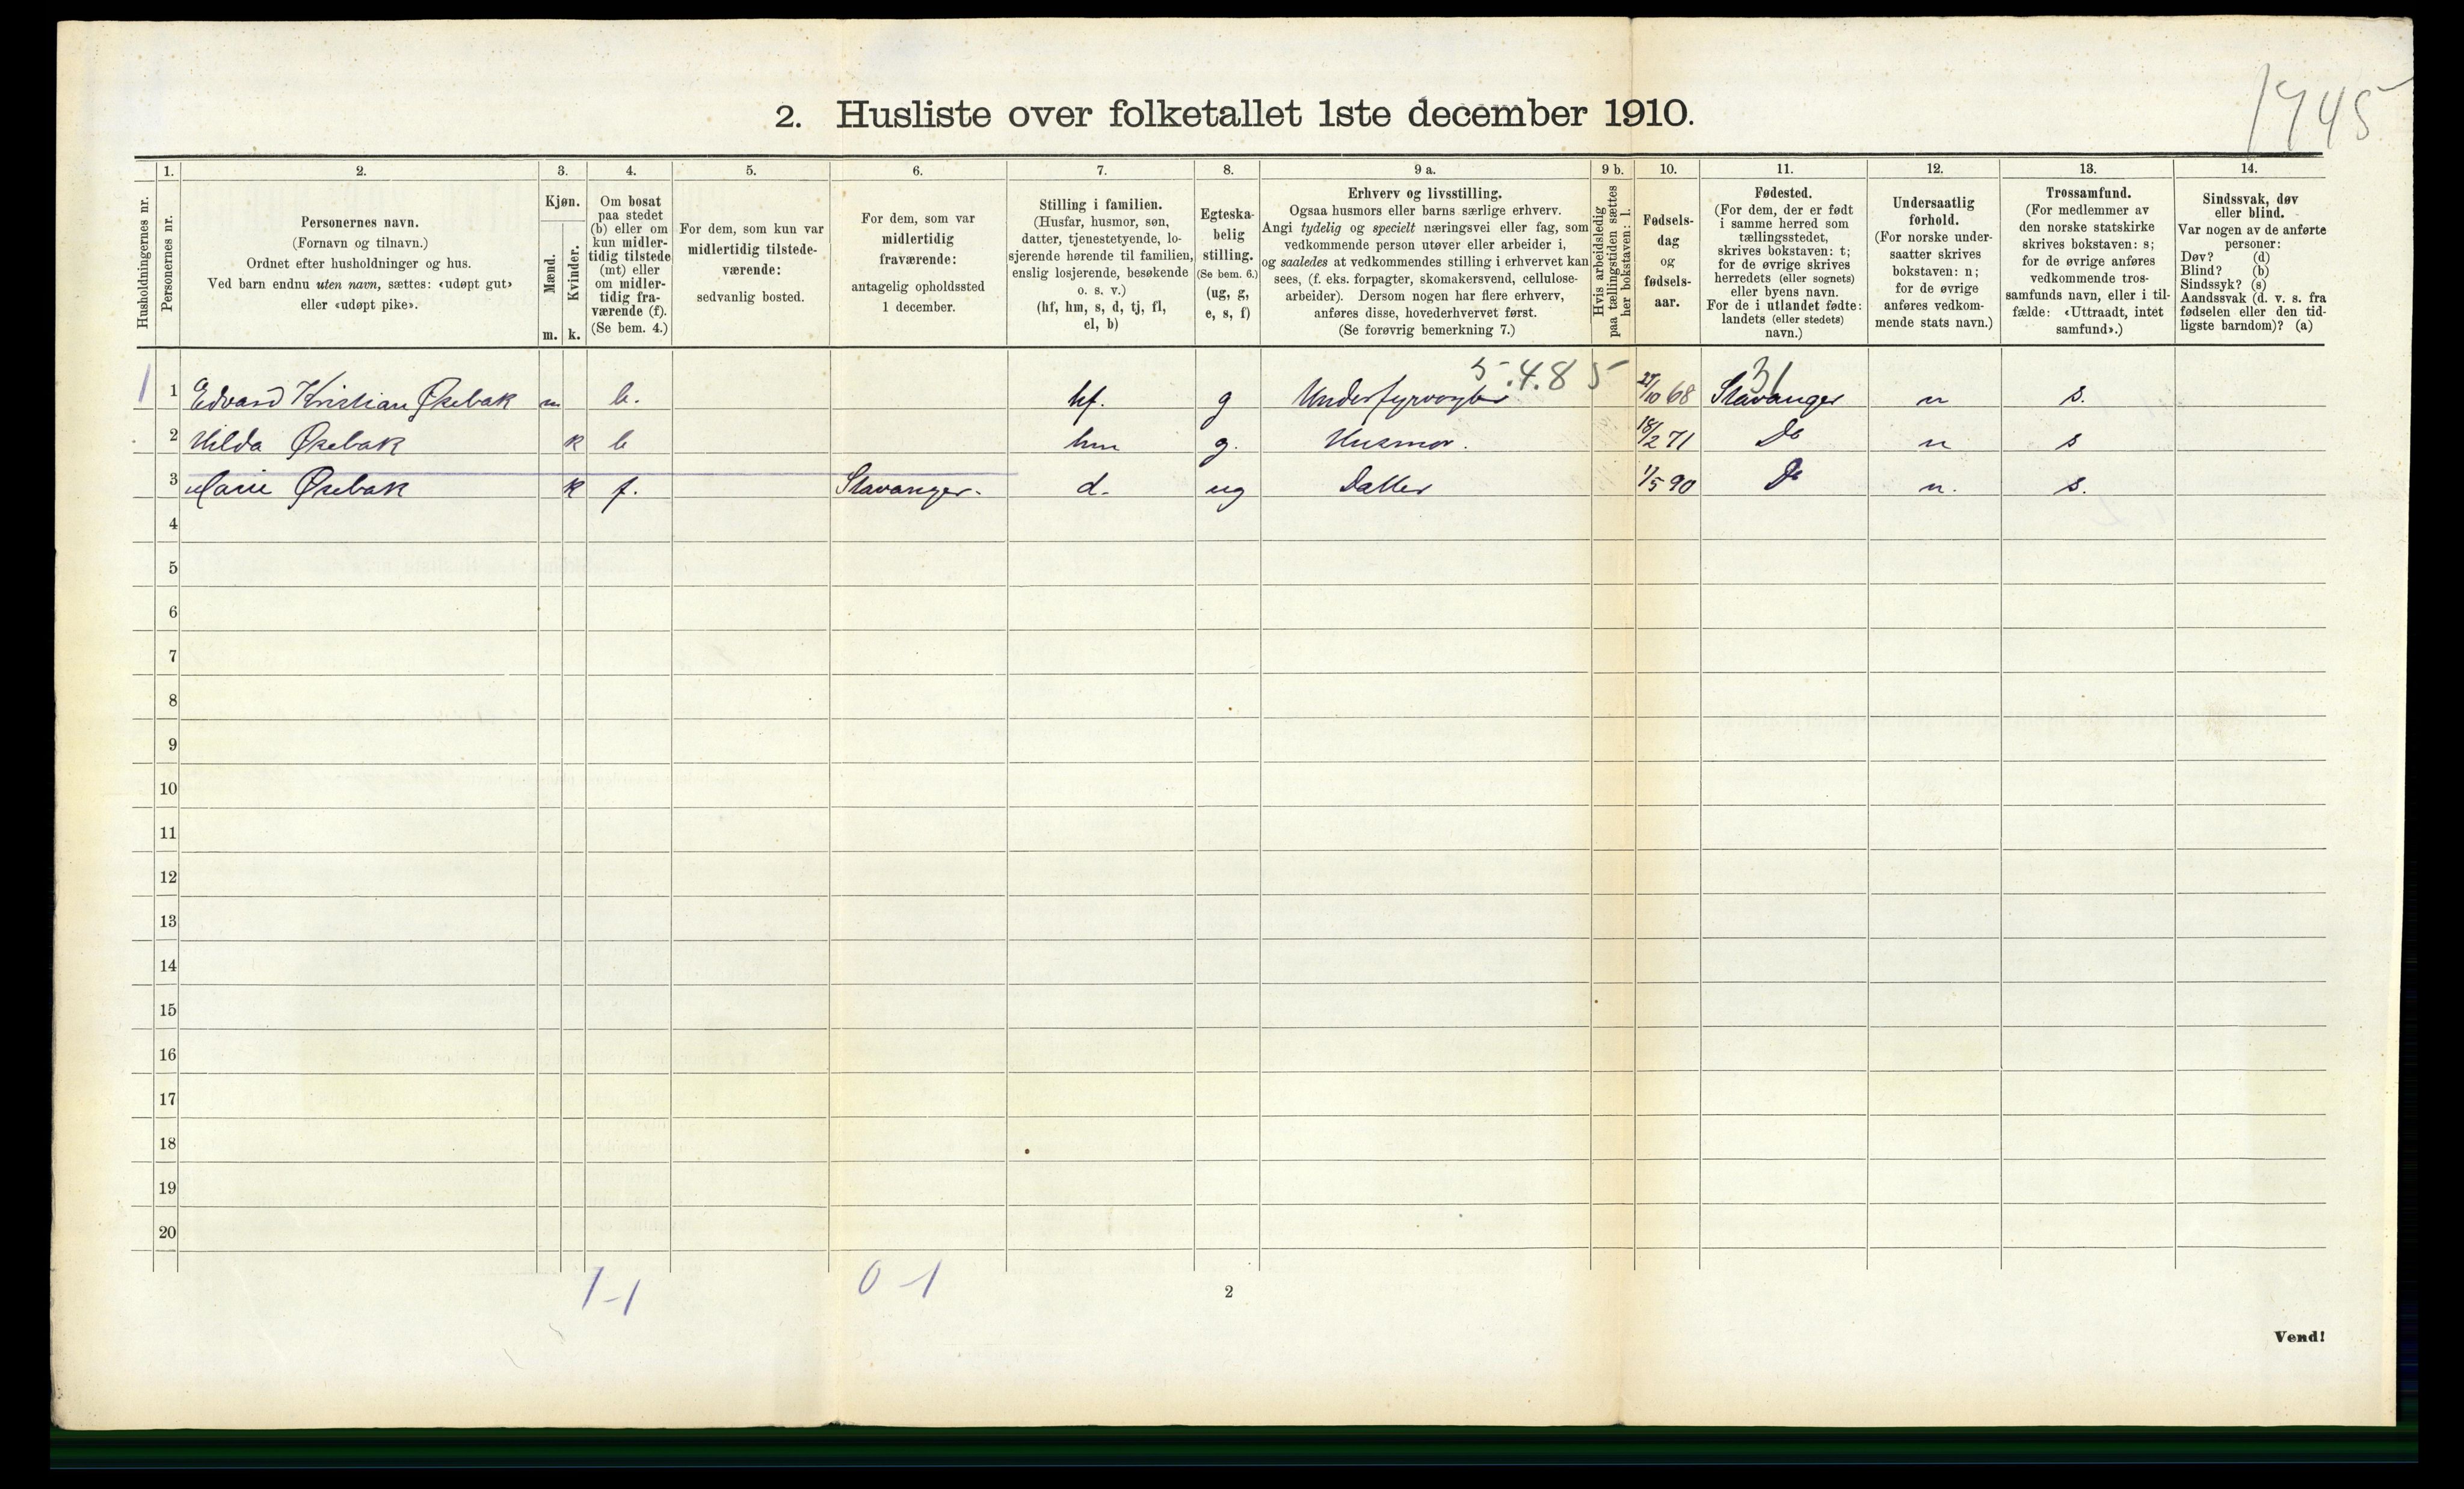 1745
2. Husliste over folketallet 1ste december 1910.
1. 2. 3. 4. 5. 6. 7. 8. 9 a. 9 b. 10. 11. 12. 13. 14.
Husholdningernes nr.
Personernes nr.
Personernes navn.
(Fornavn og tilnavn.)
Ordnet efter husholdninger og hus.
Ved barn endnu uten navn, sættes: «udøpt gut»
eller «udøpt pike».
Kjøn.
Mænd.
Kvinder.
m. k.
Om bosat
paa stedet
(b) eller om
kun midler-
tidig tilstede
(mt) eller
om midler-
tidig fra-
værende (f).
(Se bem. 4.)
For dem, som kun var
midlertidig tilstede-
værende:
sedvanlig bosted.
For dem, som var
midlertidig
fraværende:
antagelig opholdssted
1 december.
Stilling i familien.
(Husfar, husmor, søn,
datter, tjenestetyende, lo-
sjerende hørende til familien,
enslig losjerende, besøkende
o. s. v.)
(hf, hm, s, d, tj, fl,
el, b)
Egteska-
belig
stilling.
(Se bem. 6.)
(ug, g,
e, s, f)
Erhverv og livsstilling.
Ogsaa husmors eller barns særlige erhverv.
Angi tydelig og specielt næringsvei eller fag, som
vedkommende person utøver eller arbeider i,
og saaledes at vedkommendes stilling i erhvervet kan
sees, (f. eks. forpagter, skomakersvend, cellulose-
arbeider). Dersom nogen har flere erhverv,
anføres disse, hovederhvervet først.
(Se forøvrig bemerkning 7.)
Hvis arbeidsledig
paa tællingstiden sættes
her bokstaven: l.
Fødsels-
dag
og
fødsels-
aar.
Fødested.
(For dem, der er født
i samme herred som
tællingsstedet,
skrives bokstaven: t;
for de øvrige skrives
herredets (eller sognets)
eller byens navn.
For de i utlandet fødte:
landets (eller stedets)
navn.)
Undersaatlig
forhold.
(For norske under-
saatter skrives
bokstaven: n;
for de øvrige
anføres vedkom-
mende stats navn.)
Trossamfund.
(For medlemmer av
den norske statskirke
skrives bokstaven: s;
for de øvrige anføres
vedkommende tros-
samfunds navn, eller i til-
fælde: «Uttraadt, intet
samfund».)
Sindssvak, døv
eller blind.
Var nogen av de anførte
personer:
Døv? (d)
Blind? (b)
Sindssyk? (s)
Aandssvak (d. v. s. fra
fødselen eller den tid-
ligste barndom)? (a)
5.4.8 5 31
1 1 Edvard Kristian Øxebak m b. hf. g Underfyrvogter /10 68 Stavanger n s.
2 Hilda Øxebak k b hm g. Husmor. 18/2 71 Do n s
3 Marie Øxebak k f. Stavanger. d. ug Datter 1/5 90 Do n. s.
4
5
6
7
8
9
10
11
12
13
14
15
16
17
18
19
20
1-1 0-1
2
Vend!